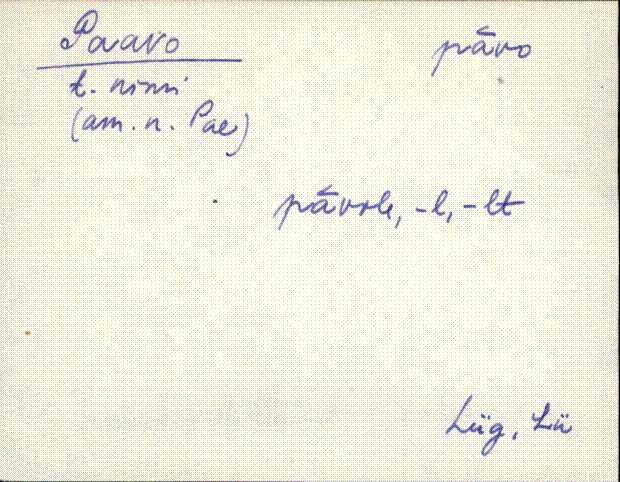 Paavo pāvo
t. nimi
(am. n. Pae)
pāvole, -l, -lt
Lüg, Lü